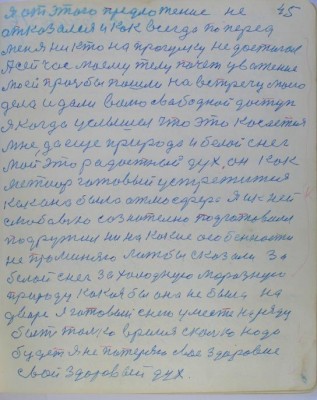 я от этого предложение не 45
отказался и как всегда по перед
меня ни кто на прогулку не доставал
А сейчас моему телу почет уважение
моей прозьбы пошли на встречу моего
дела и дали волю свободной доступ
Я когда услышал что это касается
мне, да еще природа и белой снег
мой это радостный дух, он как
метиор готовый устремится
как она была атмосфера Я их ней
с любовью сознательно подготовился
подружил ни на какие особенности
не променяю лижбы сказали за
белой снег за холодную морозную
природу какия бы она не была на
дворе я готовый с нею уместо наряду
быть только время сколько надо
будет я не потеряю свое здоровие
свой здоровый дух.